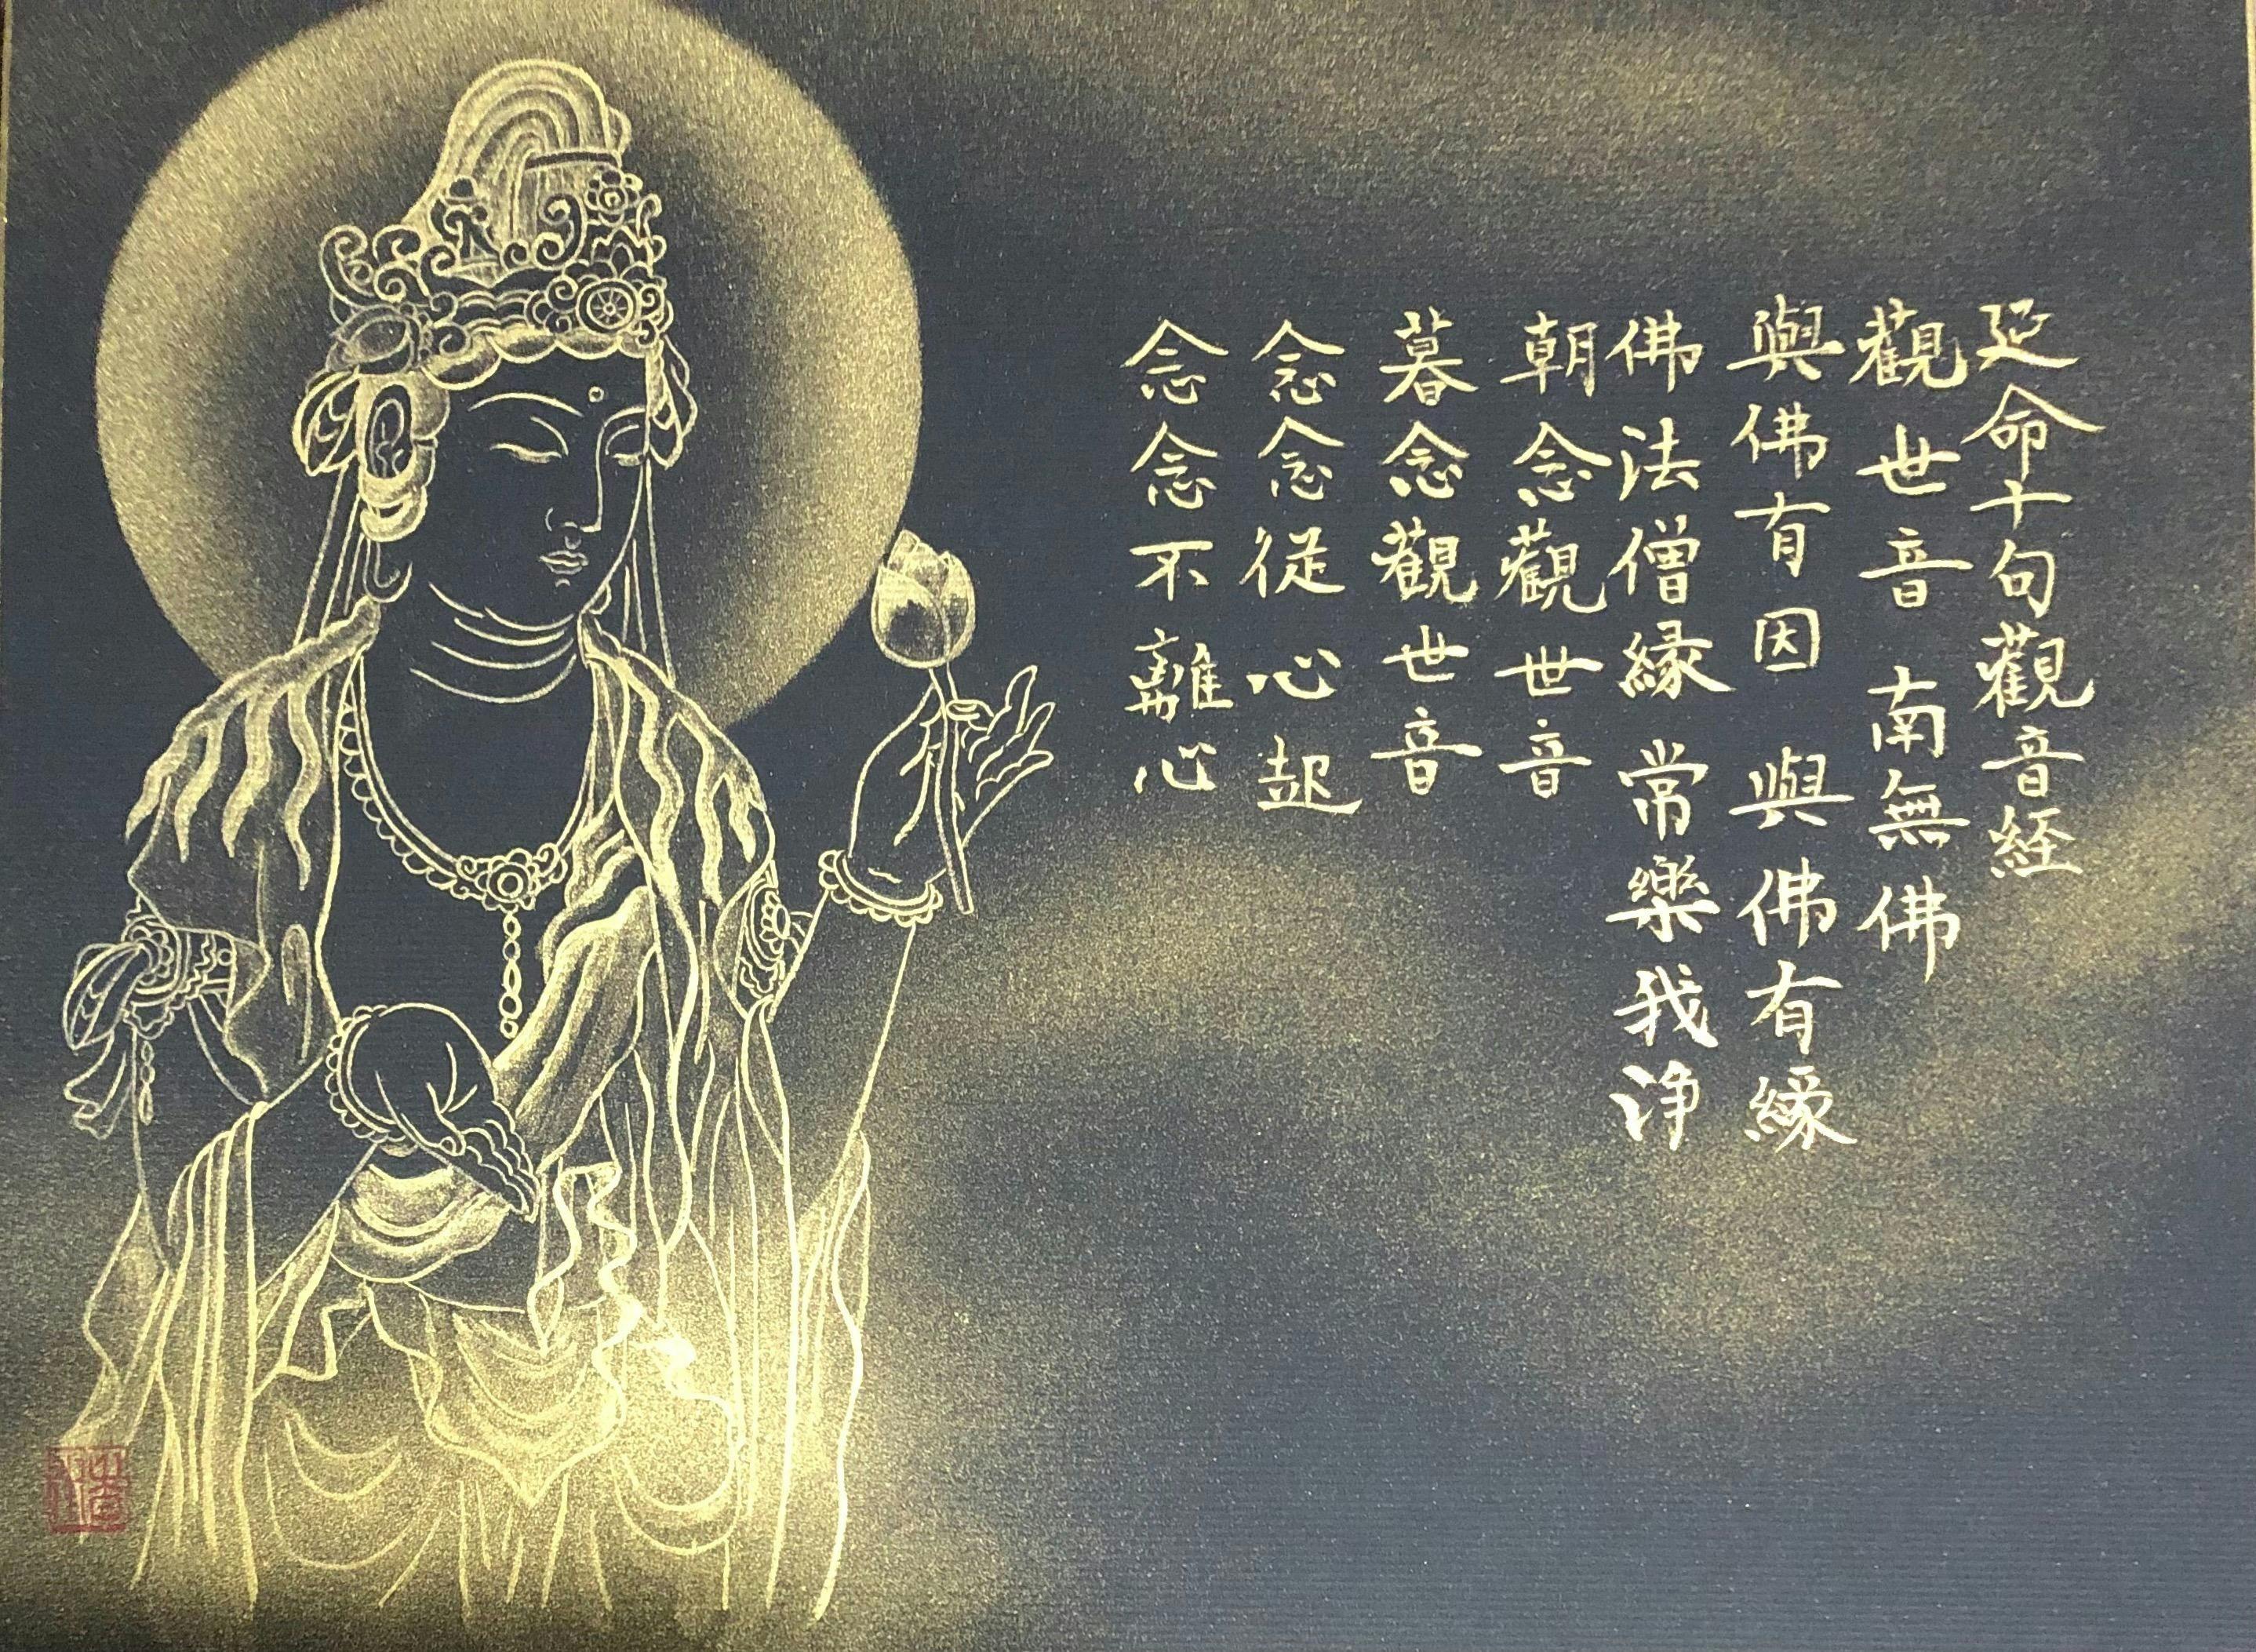 延命十句觀音経
觀世音 南無佛
與佛有因 與佛有縁
佛法僧縁 常樂我浄
朝念觀世音
暮念觀世音
念念従心起
念念不離心